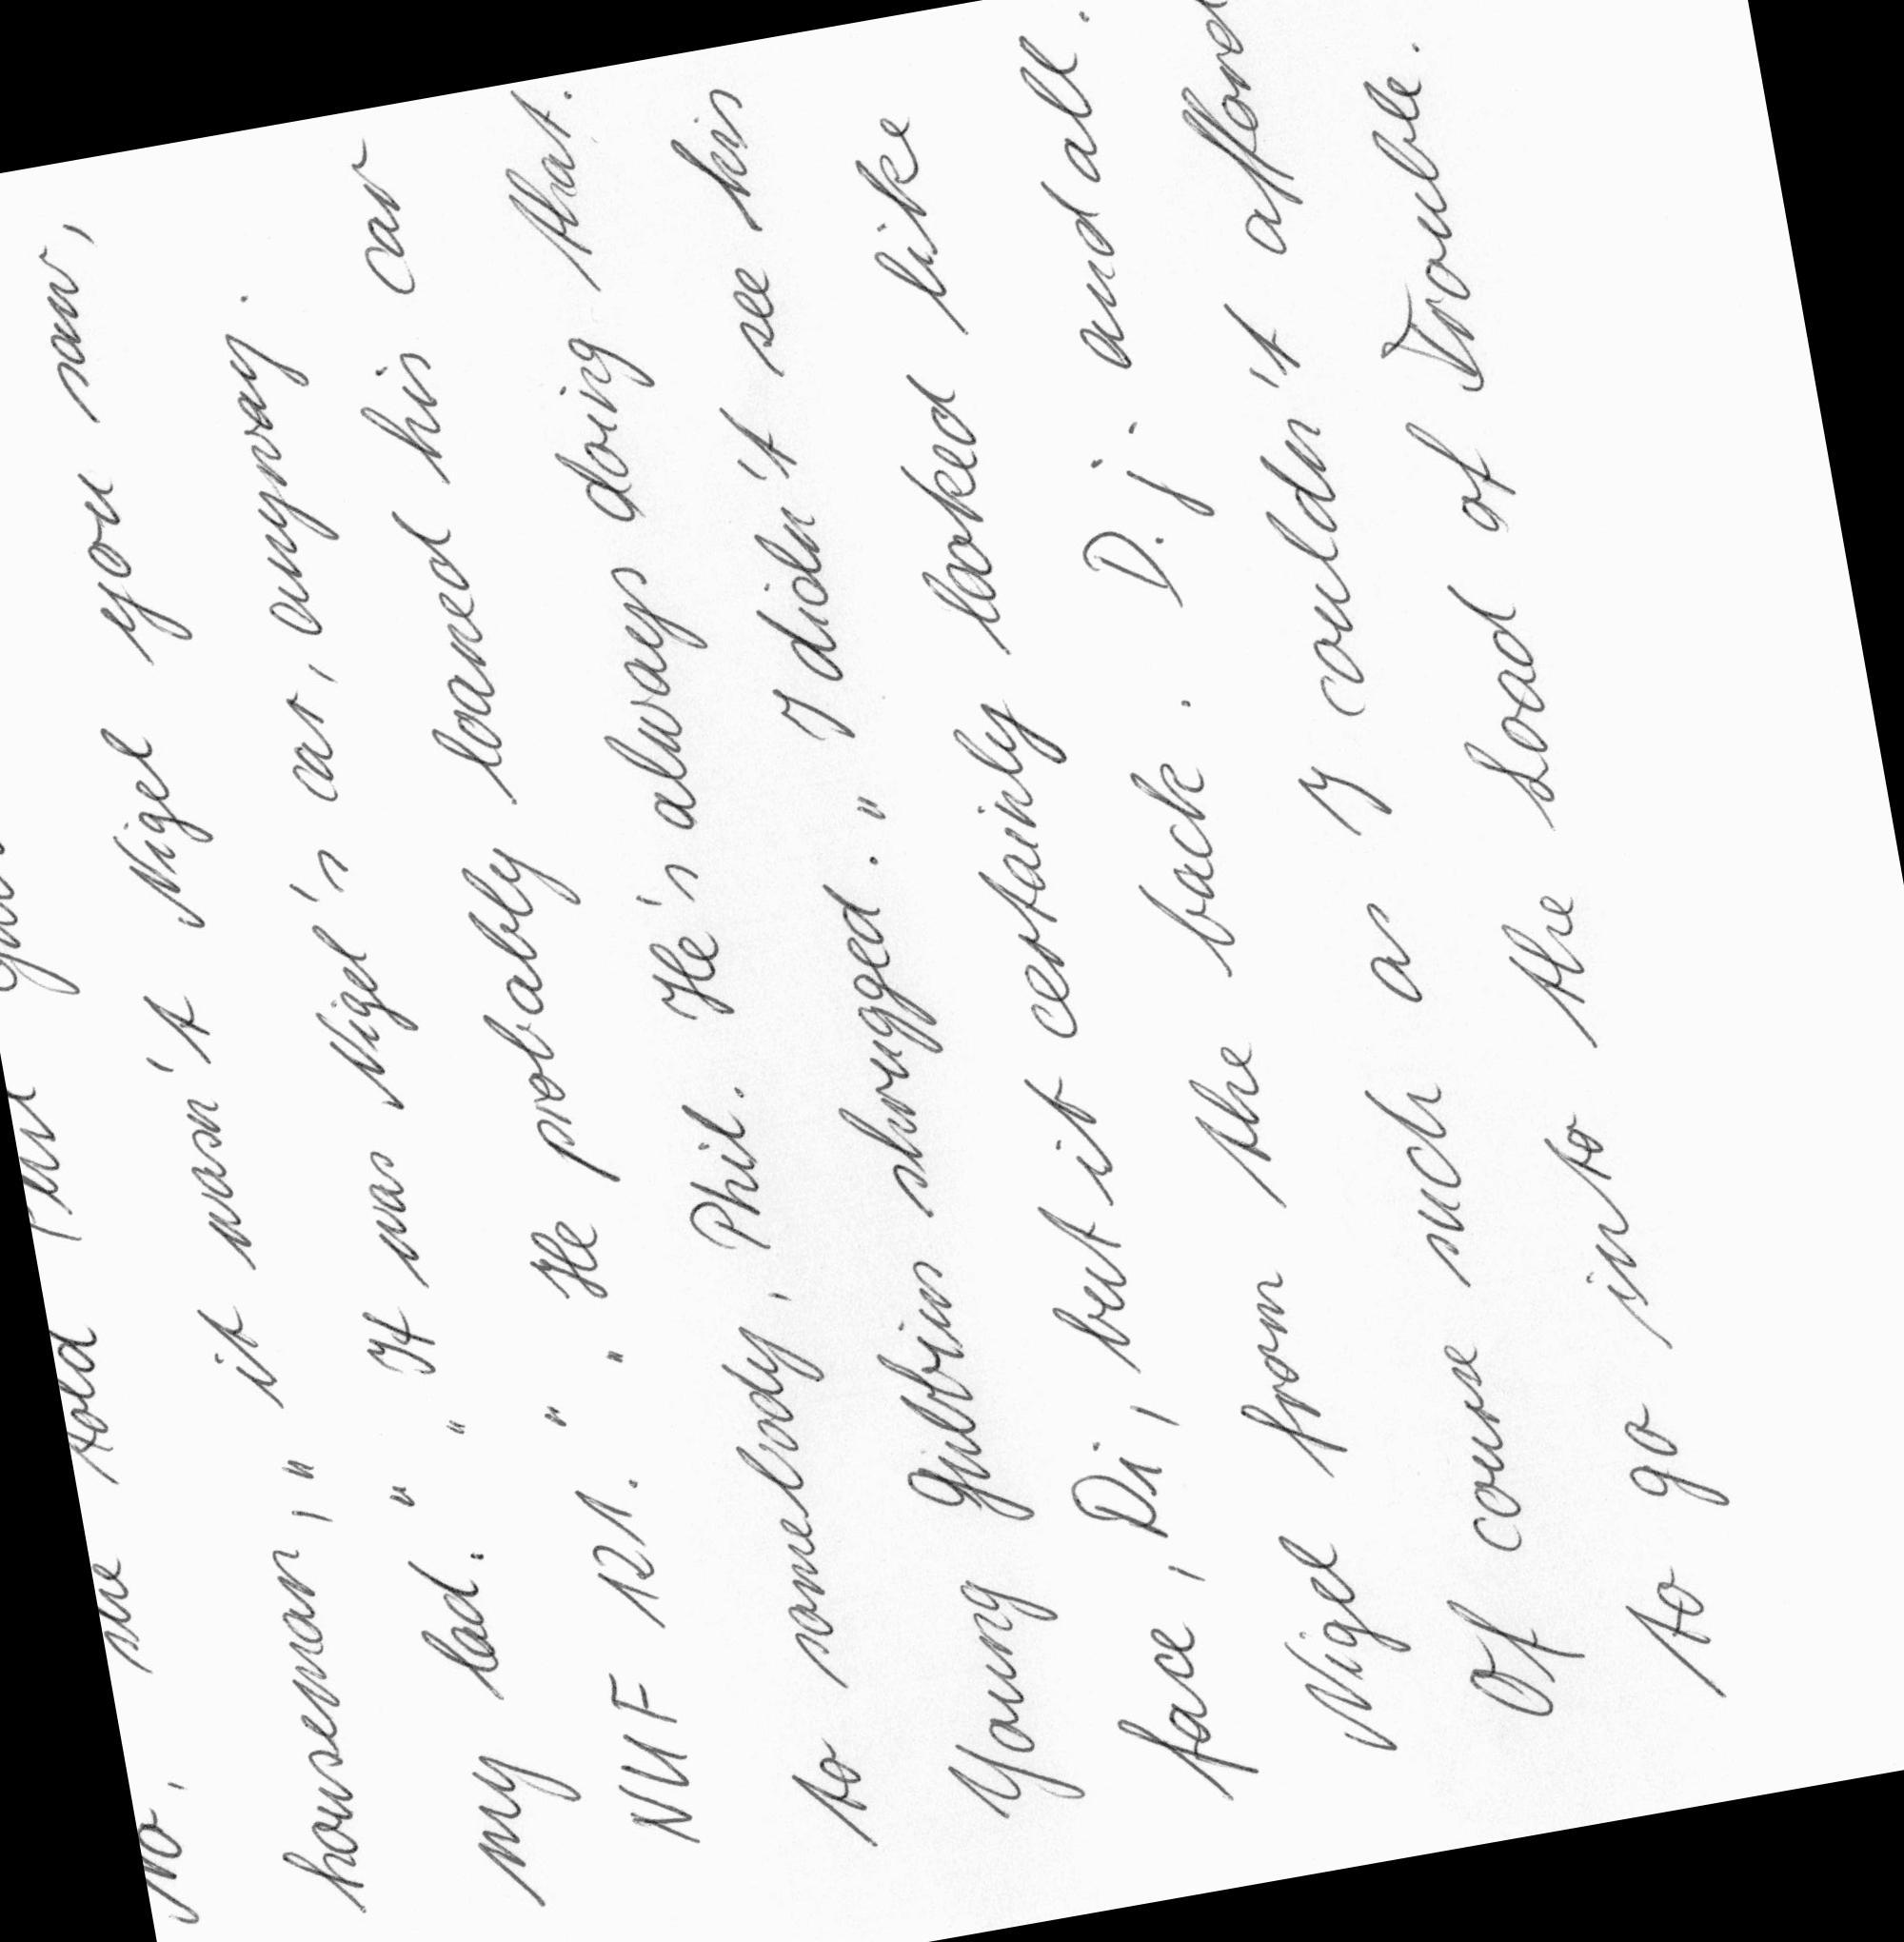 No, she told Phil
houseman," it wasn't Nigel you saw,
my lad." " It was Nigel's car, anyway.
NUF 121. " " He probably loaned his car
to somebody, Phil. He's always doing that.
Young Gubbins shrugged. " I didn't see his
face, Di, but it certainly looked like
Nigel from the back. D. j. and all.
Of course such as I couldn't afford
to go into the Load of Trouble.